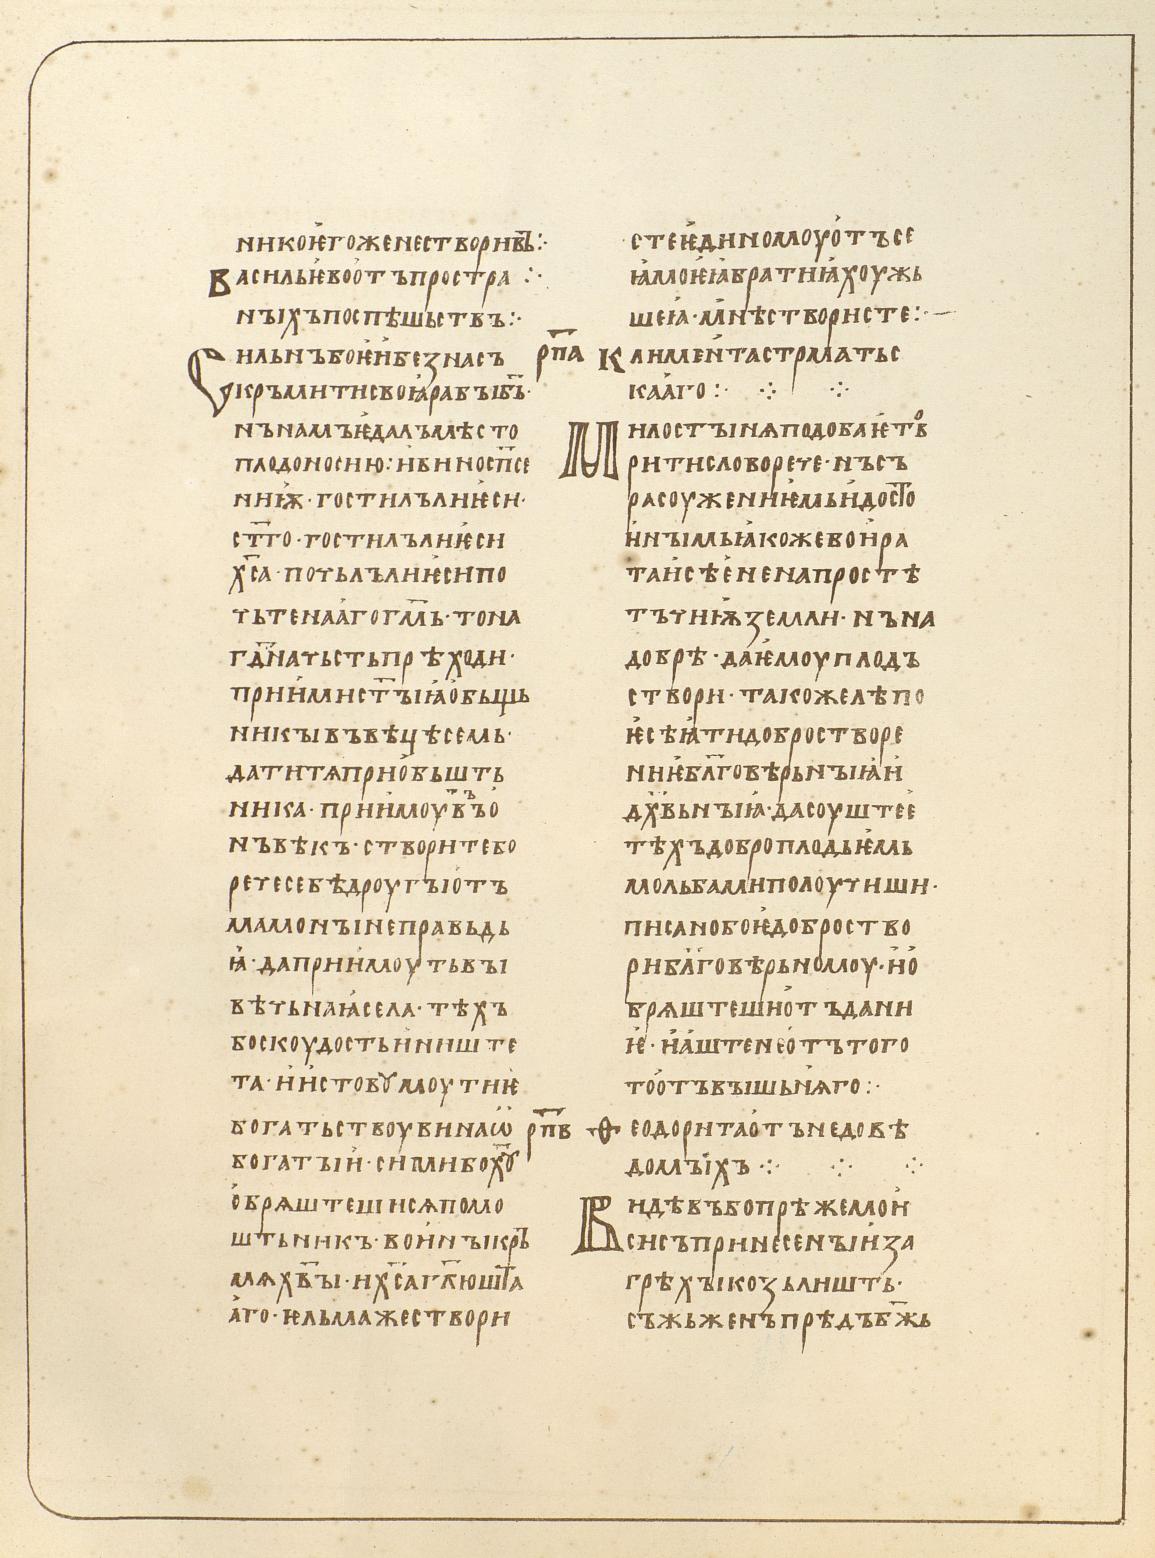 никоѥгоженестворивъ:·
Васильѥвоотъпростра :·
ныхъпоспѣшьствъ:·
Сильнъбоѥибезнасъ
кръмитисвоꙗрабыбъ·
нънамъѥдалъмѣсто
плодоносию:ибиноспсе
ниѭ·гостилълиѥси·
стго·гостилълиѥси
хса·почьлълиѥсипо
чьтенааго҃гмь·тона
гднꙗчьстьпрѣходи·
приимистыꙗобьщь
никывъвѣцѣсемь·
датитѧприобьшть
ника·приимоувъо
нъвѣкъ·створитебо
речесебѣдроугыотъ
мамонынеправьдь
ꙗ·даприимоутьвы
вѣчьнаꙗсела·тѣхъ
боскоудостьиниште
та·иистовꙋмоутиѥ
богатьствоувинаѡ
богатыи·сиплибохꙋ
обрѧштешисѧпомо
штьникъ·воинъікръ
мѧхвы·ихсагкюшта
аго·ѥльмажествори
стеѥдиномоуотъсе
ꙗмоѥꙗбратиꙗхоужь
шеꙗ·мнѣствористе:·
рпа Климентастрматьс
кааго:· ·:· ·:·
Милостынѧподобаѥтв
ритисловорече·нъсъ
расоужениѥмьидосто
инымьꙗкожевоира
таисѣѥненапростѣ
тъчниѭземли·нъна
добрѣ·даѥмоуплодъ
створи·такожелѣпо
ѥсѣꙗтидобростворе
ниѥблговѣрьныꙗи
дхвьныꙗ·дасоуштеѥ
тѣхъдоброплодьѥмь
мольбамиполоучиши·
писанобоѥдоброство
риблговѣрьномоу·ио
брѧштешиотъдани
ѥ·иаштенеотътого
тоотъвышьнѧго:·
рпв Ѳеодоритаотънедовѣ
домыихъ·:· ·:· ·:·
Видѣвъбопрѣжемои
сисъпринесеныиза
грѣхыкозьлишть·
съжьженъпрѣдъбжь